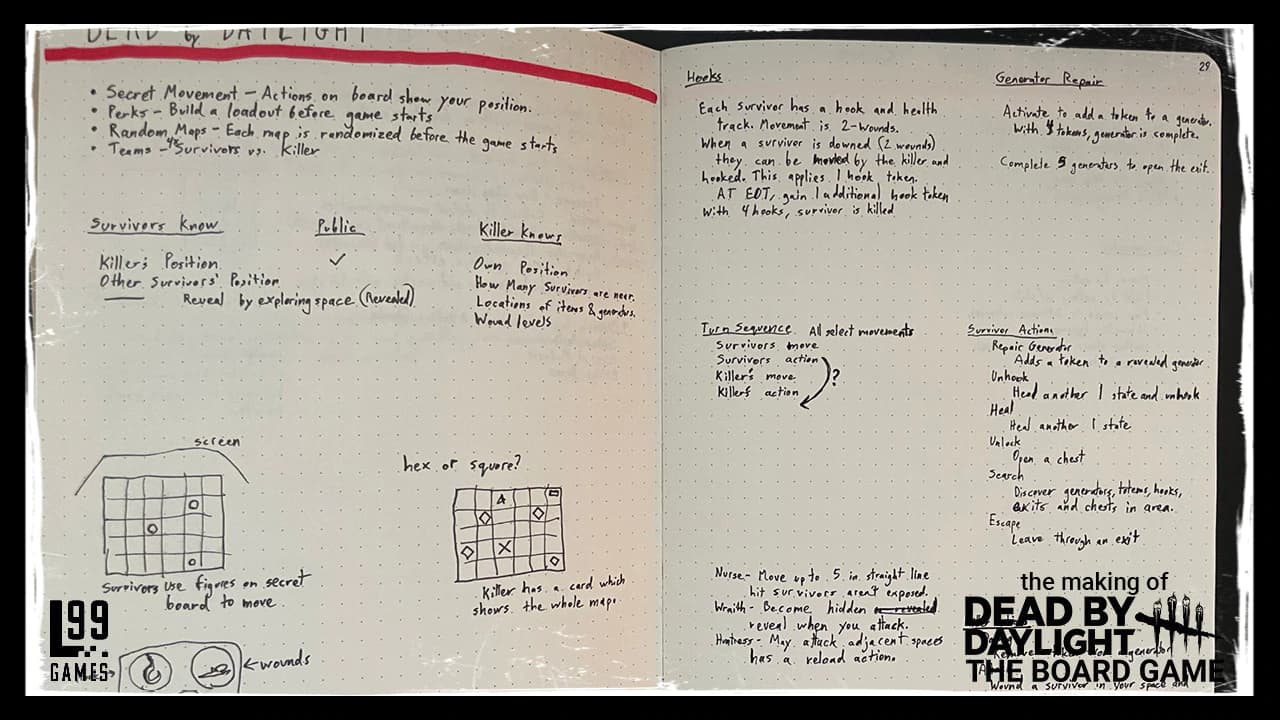 DEAD by DAYLIGHT
• Secret Movement – Actions on board show your position.
• Perks – Build a loadout before game starts
• Random Maps – Each map is randomized before the game starts
• Teams – 4 Survivors vs. Killer
Survivors Know
Killer's Position
Other Survivors' Position
Reveal by exploring space (Revealed)
Public
✓
Killer Knows
Own Position
How Many Survivors are near.
Locations of items & generators.
Wound levels
screen
Survivors use figures on secret
board to move
hex or square?
Killer has a card which
shows the whole map.
←wounds
29
Hooks
Each survivor has a hook and health
track. Movement is 2-wounds.
When a survivor is downed (2 wounds)
they can be moved by the killer and
hooked. This applies 1 hook token.
AT EOT, gain 1 additional hook token
With 4 hooks, survivor is killed
Generator Repair
Activate to add a token to a generator.
With tokens, generator is complete.
Complete 5 generators to open the exit.
Turn Sequence All select movements
Survivors move
Survivors action
Killer's move
Killer's action
?
Survivor Actions
Repair Generator
Adds a token to a revealed generator
Unhook
Heal another 1 state and unhook
Heal
Heal another 1 state
Unlock
Open a chest
Search
Discover generators, totems, hooks,
exits and chests in area.
Escape
Leave through an exit
Nurse – Move up to 5 in straight line
hit survivors aren't exposed.
Wraith – Become hidden or revealed
reveal when you attack.
Huntress – May attack adjacent spaces
has a reload action.
generator
Wound a survivor in your space and
L99
GAMES
the making of
DEAD BY
DAYLIGHT
THE BOARD GAME